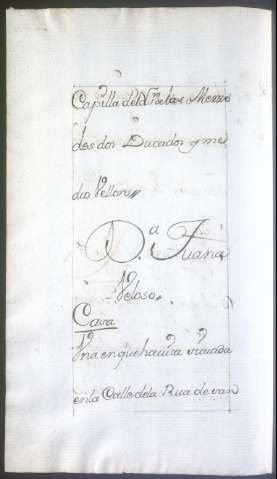 Capilla del Sr. de las Merce
des dos Ducados y me
dio Vellon,,
D.ª Juana
Veloso,,
Casa
Una en que havita situada
en la Calle dela Rua de van